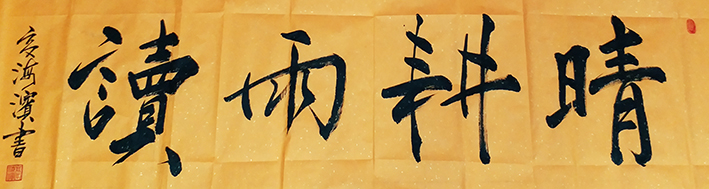 晴耕雨讀
夏海濱書